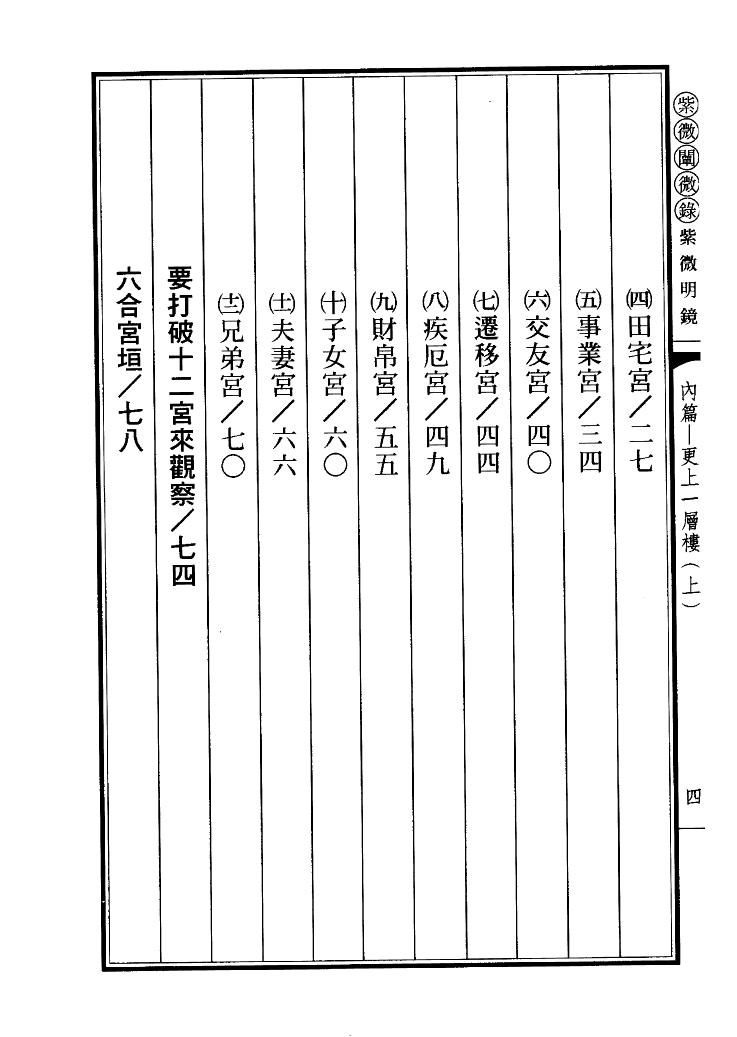 紫微闡微錄 紫微明鏡 內篇—更上一層樓(上) 四
㈣田宅宮/二七
㈤事業宮/三四
㈥交友宮/四〇
㈦遷移宮/四四
㈧疾厄宮/四九
㈨財帛宮/五五
㈩子女宮/六〇
(十一)夫妻宮/六六
(十二)兄弟宮/七〇
要打破十二宮來觀察/七四
六合宮垣/七八